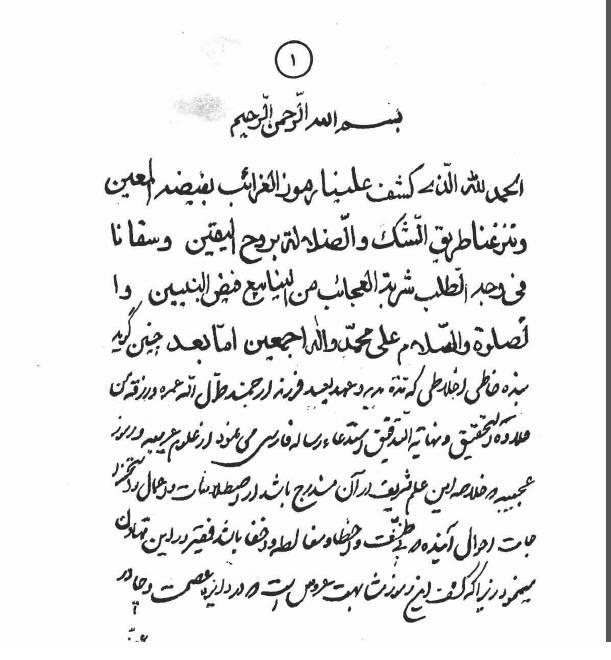 ۱
بسم الله الرّحمن الرّحیم
الحمد لله الّذی کشف علینا رموز الغرائب بفیضه المعین
ونزعنا طریق الشّک والضلالة بروح الیقین وسقانا
فی وجد الطلب شربة العجائب من الینابیع فیض النبیین وا
لصلوة والصّلام علی محمّد واله اجمعین امّا بعد چنین گوید
بنده خاطی اخلاطی که مدید و عهد بعید فرزند ارجمند طوّل الله عمره ورزقه من
حلاوة التحقیق ونهایة التدقیق استدعاء رساله فارسی می نمود از علوم غریبه ورموز
عجیبه که خلاصه این علم شریف در آن مندرج باشد از اصطلاحات و اعمال و استخرا
جات احوال آینده که بی و اخطا و مغالطه و اخفا باشد فقیر در این تهاون
مینمود زیرا که کشف این رموز عروس است که در دایره عصمت و چادر